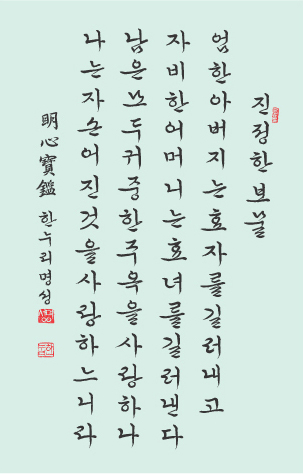 진정한보물
엄한아버지는효자를길러내고
자비한어머니는효녀를길러낸다
남은모두귀중한주옥을사랑하나
나는자손어진것을사랑하느니라
明心寶鑑 한누리명성